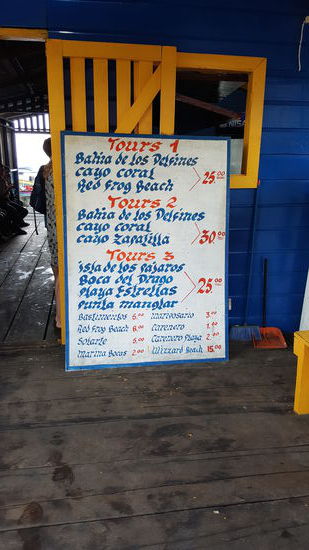 Tours 1
Bahia de los Delfines
cayo coral
Red Frog Beach
25.00
Tours 2
Bahia de los Delfines
cayo coral
cayo Zapatilla
30.00
Tours 3
Isla de los pajaros
Boca del Drago
playa Estrellas
punta manglar
25.00
Bastimentos 5.00 macrosario 3.00
Red Frog Beach 8.00 Carenero 1.00
Solarte 5.00 Carenero Playa 2.00
Marina Bocas 2.00 Wizzard Beach 15.00